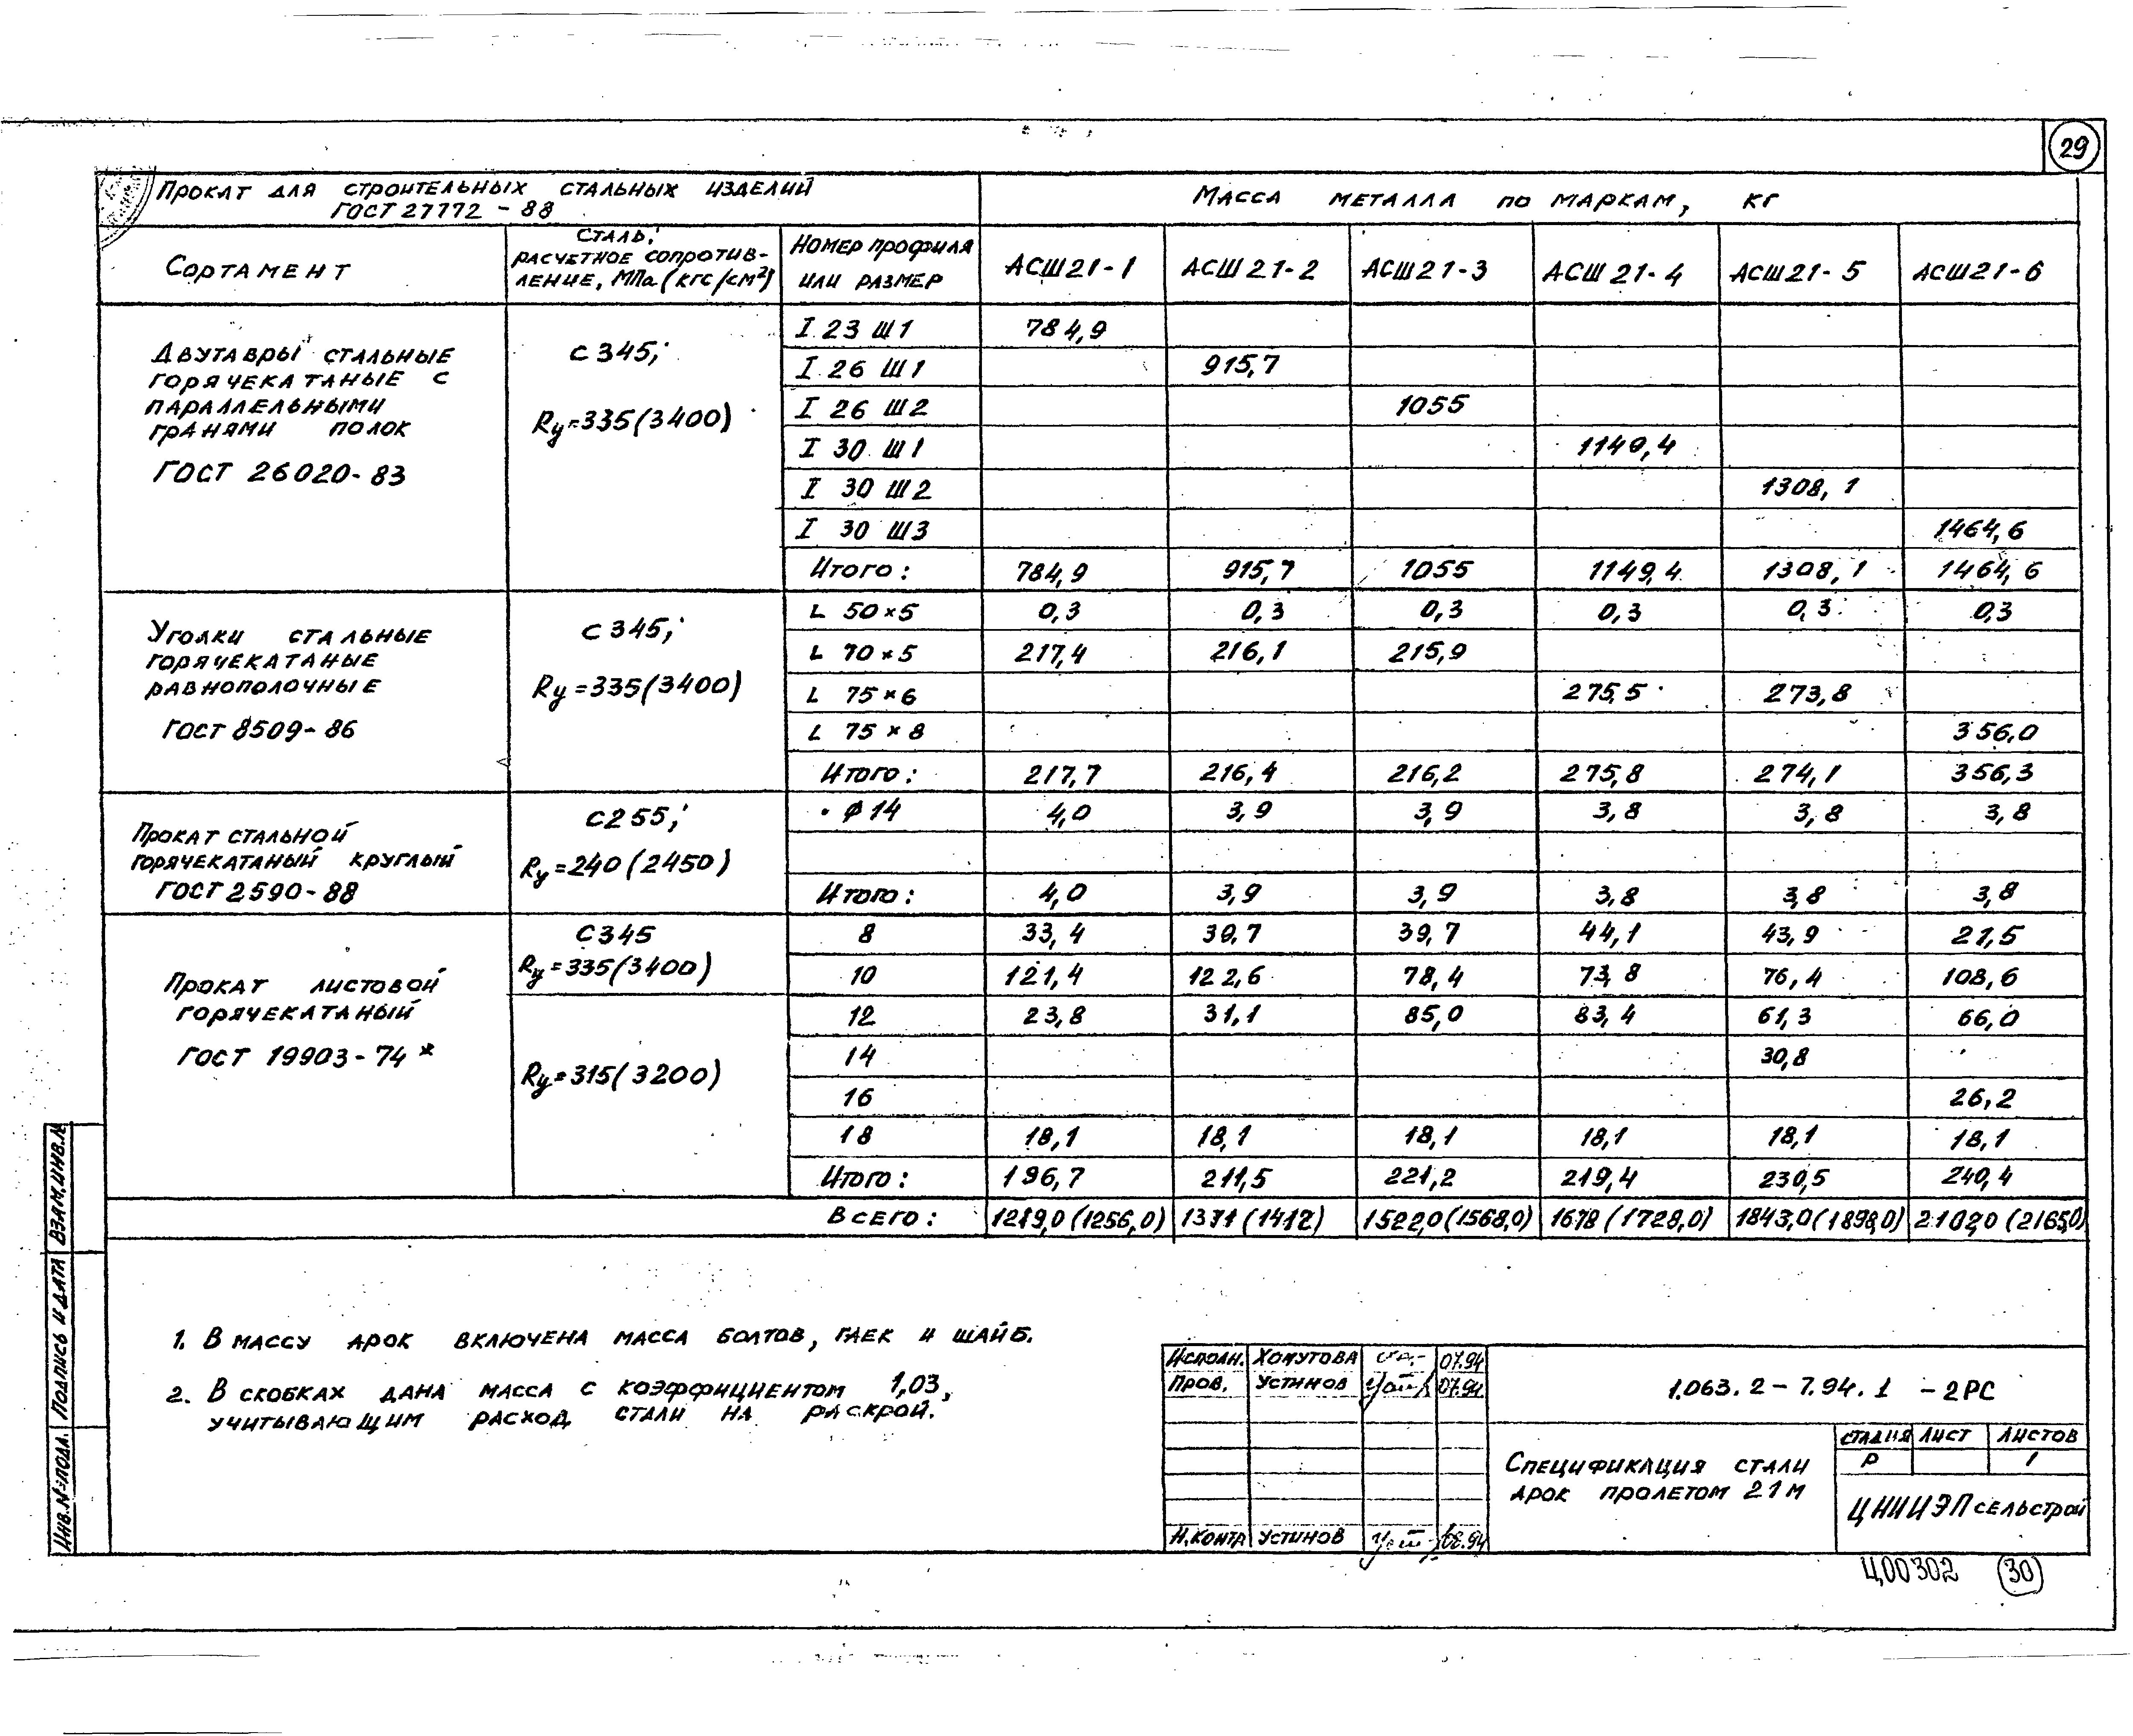 29
Прокат для строительных стальных изделий
ГОСТ 27772 - 88
Масса металла по маркам, кг
Сортамент
Сталь,
расчетное сопротив-
ление, МПа (кгс/см²)
Номер профиля
или размер
АСШ21-1
АСШ21-2
АСШ21-3
АСШ21-4
АСШ21-5
АСШ21-6
Двутавры стальные
горячекатаные с
параллельными
гранями полок
ГОСТ 26020-83
С345;
Ry=335(3400)
I 23 Ш1 784,9
I 26 Ш1 915,7
I 26 Ш2 1055
I 30 Ш1 1149,4
I 30 Ш2 1308,1
I 30 Ш3 1464,6
Итого: 784,9 915,7 1055 1149,4 1308,1 1464,6
Уголки стальные
горячекатаные
равнополочные
ГОСТ 8509-86
С345;
Ry=335(3400)
L 50×5 0,3 0,3 0,3 0,3 0,3 0,3
L 70×5 217,4 216,1 215,9
L 75×6 275,5 273,8
L 75×8 356,0
Итого: 217,7 216,4 216,2 275,8 274,1 356,3
Прокат стальной
горячекатаный круглый
ГОСТ 2590-88
С255;
Ry=240(2450)
• ϕ14 4,0 3,9 3,9 3,8 3,8 3,8
Итого: 4,0 3,9 3,9 3,8 3,8 3,8
Прокат листовой
горячекатаный
ГОСТ 19903-74*
С345
Ry=335(3400)
Ry=315(3200)
8 33,4 39,7 39,7 44,1 43,9 21,5
10 121,4 122,6 78,4 73,8 76,4 108,6
12 23,8 31,1 85,0 83,4 61,3 66,0
14 30,8
16 26,2
18 18,1 18,1 18,1 18,1 18,1 18,1
Итого: 196,7 211,5 221,2 219,4 230,5 240,4
Всего: 1219,0 (1256,0) 1371 (1412) 1522,0 (1568,0) 1678 (1728,0) 1843,0 (1898,0) 2102,0 (2165,0)
1. В массу арок включена масса болтов, гаек и шайб.
2. В скобках дана масса с коэффициентом 1,03,
учитывающим расход стали на раскрой.
Инв.№подл. Подпись и дата Взам.инв.№
Исполн. Хомутова 07.94
Пров. Устинов 07.94
Н.контр Устинов 08.94
1.063.2-7.94.1 -2РС
Спецификация стали
арок пролетом 21м
Стадия Лист Листов
Р 1
ЦНИИЭПсельстрой
Ц00302 30